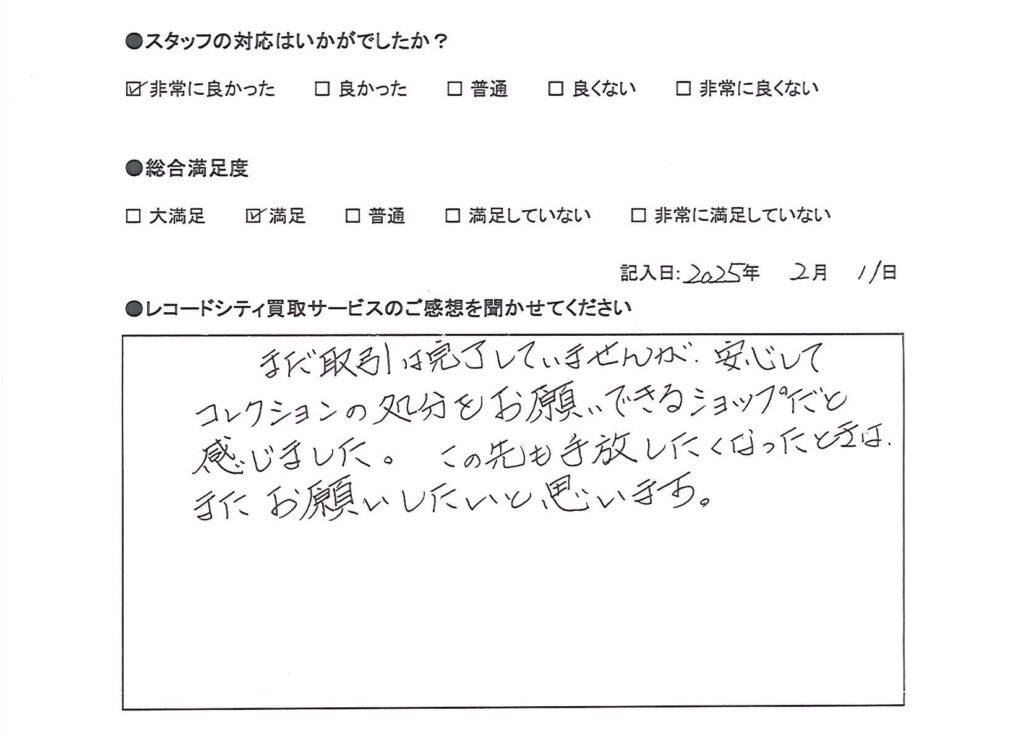 ●スタッフの対応はいかがでしたか？
☑ 非常に良かった □ 良かった □ 普通 □ 良くない □ 非常に良くない
●総合満足度
□ 大満足 ☑ 満足 □ 普通 □ 満足していない □ 非常に満足していない
記入日: 2025年 2月 11日
●レコードシティ買取サービスのご感想を聞かせてください
まだ取引は完了していませんが、安心して
コレクションの処分をお願いできるショップだと
感じました。 この先も手放したくなったときは、
また お願いしたいと思います。